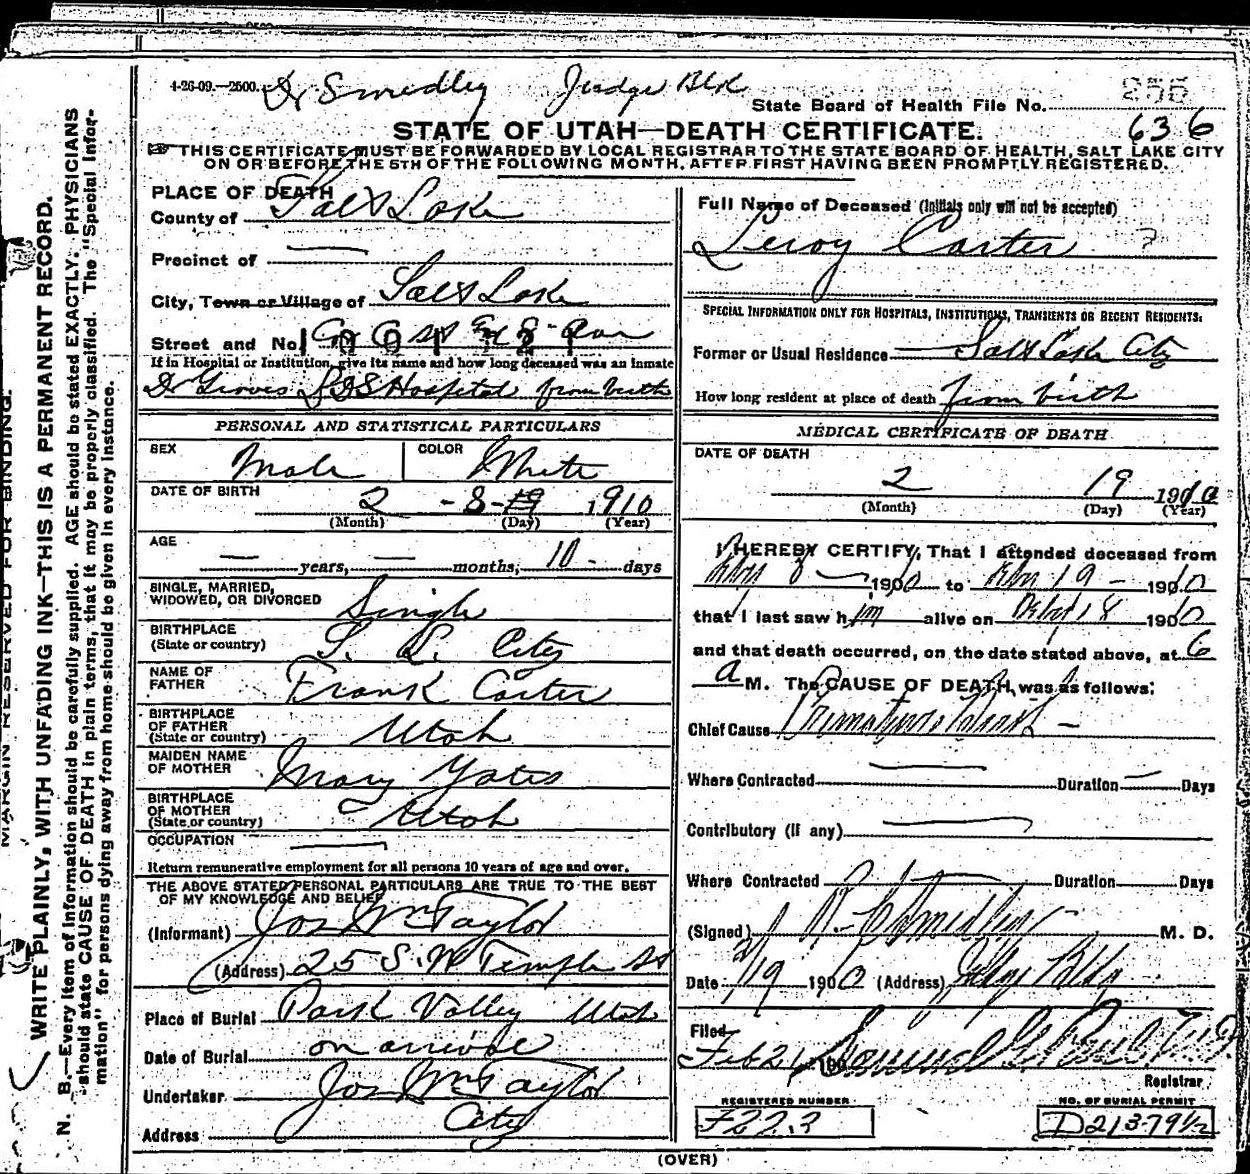 4-26-09.—2500.
Dr Smedley Judge Blk
255
State Board of Health File No.
STATE OF UTAH—DEATH CERTIFICATE.
636
THIS CERTIFICATE MUST BE FORWARDED BY LOCAL REGISTRAR TO THE STATE BOARD OF HEALTH, SALT LAKE CITY
ON OR BEFORE THE 5TH OF THE FOLLOWING MONTH, AFTER FIRST HAVING BEEN PROMPTLY REGISTERED.
MARGIN RESERVED FOR BINDING.
WRITE PLAINLY, WITH UNFADING INK—THIS IS A PERMANENT RECORD.
N. B.—Every item of information should be carefully supplied. AGE should be stated EXACTLY. PHYSICIANS
should state CAUSE OF DEATH in plain terms, that it may be properly classified. The "Special Infor-
mation" for persons dying away from home should be given in every instance.
PLACE OF DEATH
County of Salt Lake
Precinct of —
City, Town or Village of Salt Lake
Street and No.
If in Hospital or Institution, give its name and how long deceased was an inmate
Dr Groves LDS Hospital from birth
PERSONAL AND STATISTICAL PARTICULARS
SEX Male COLOR White
DATE OF BIRTH 2 - 8 - 19 1910
(Month) (Day) (Year)
AGE — years, — months, 10 - days
SINGLE, MARRIED,
WIDOWED, OR DIVORCED Single
BIRTHPLACE
(State or country) S. L. City
NAME OF
FATHER Frank Carter
BIRTHPLACE
OF FATHER
(State or country) Utah
MAIDEN NAME
OF MOTHER Mary Yates
BIRTHPLACE
OF MOTHER
(State or country) Utah
OCCUPATION —
Return remunerative employment for all persons 10 years of age and over.
THE ABOVE STATED PERSONAL PARTICULARS ARE TRUE TO THE BEST
OF MY KNOWLEDGE AND BELIEF
(Informant) Jos Wm Taylor
(Address) 25 S. W Temple St
Place of Burial Park Valley Utah
Date of Burial on arrival
Undertaker Jos Wm Taylor
Address City
Full Name of Deceased (Initials only will not be accepted)
Leroy Carter ?
SPECIAL INFORMATION ONLY FOR HOSPITALS, INSTITUTIONS, TRANSIENTS OR RECENT RESIDENTS:
Former or Usual Residence Salt Lake City
How long resident at place of death from birth
MEDICAL CERTIFICATE OF DEATH
DATE OF DEATH
2 19 1910
(Month) (Day) (Year)
I HEREBY CERTIFY, That I attended deceased from
Feby 8 — 1910 to Feby 19 - 1910
that I last saw him alive on Feby 18 1910
and that death occurred, on the date stated above, at 6
a M. The CAUSE OF DEATH, was as follows:
Chief Cause Premature Birth -
Where Contracted — Duration — Days
Contributory (if any) —
Where Contracted Duration Days
(Signed) Smedley M. D.
Date 2/19 1910 (Address) Judge Bldg
Filed
Feb 21 190
Registrar
REGISTERED NUMBER
F223
NO. OF BURIAL PERMIT
D21379½
(OVER)